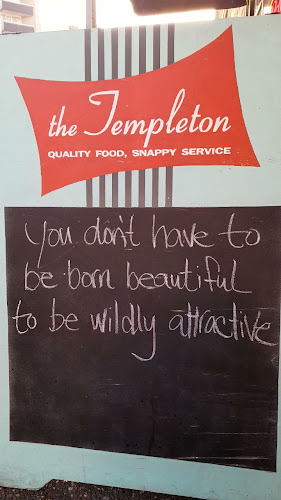 the Templeton
QUALITY FOOD, SNAPPY SERVICE
you don't have to
be born beautiful
to be wildly attractive